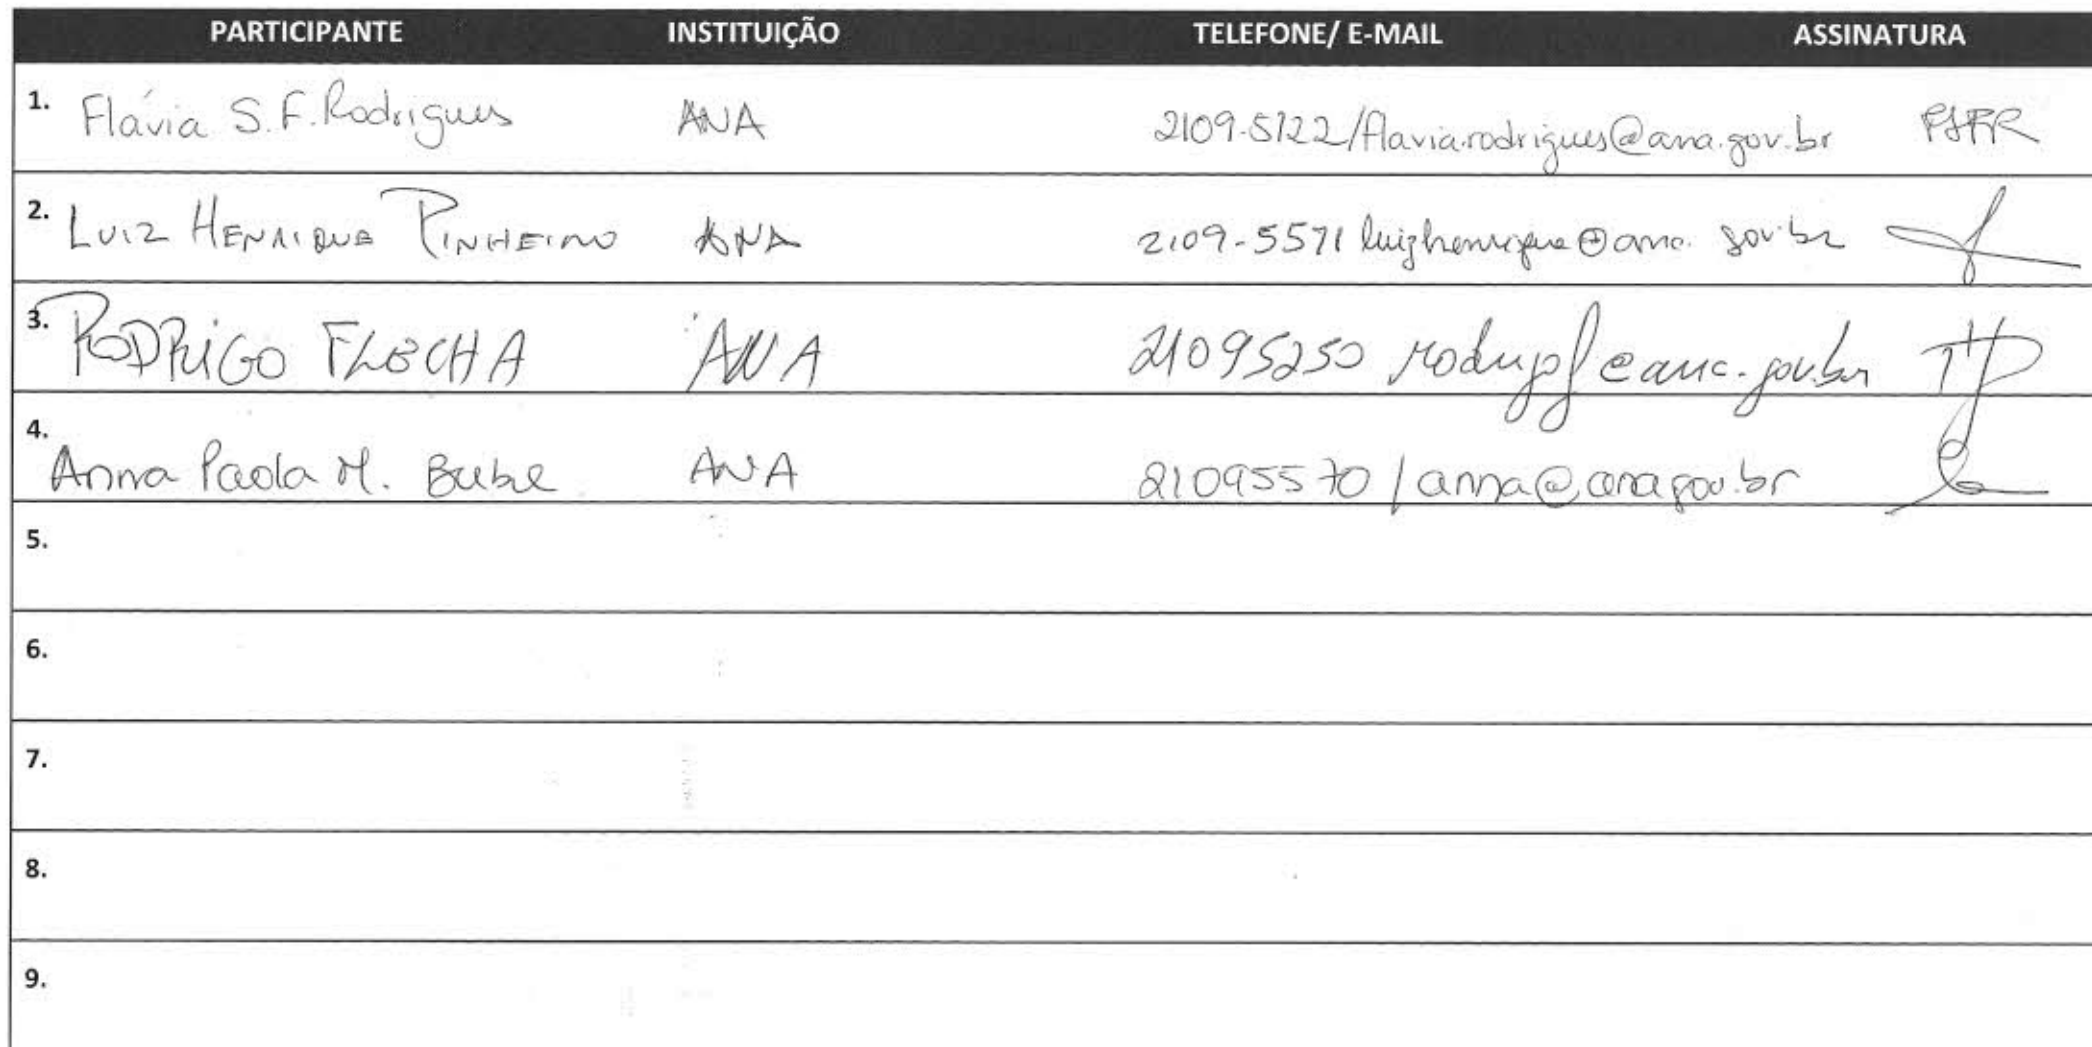 PARTICIPANTE INSTITUIÇÃO TELEFONE/ E-MAIL ASSINATURA
1. Flávia S.F. Rodrigues ANA 2109-5122/flavia.rodrigues@ana.gov.br
2. LUIZ HENRIQUE PINHEIRO ANA 2109-5571 luizhenrique@ana.gov.br
3. RODRIGO FLECHA ANA 21095250 rodrigof@ana.gov.br
4. Anna Paola M. Bubel ANA 21095570 / anna@ana.gov.br
5.
6.
7.
8.
9.